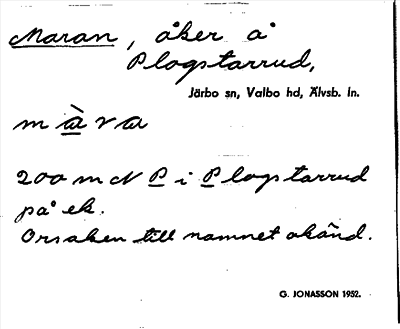 Maran, åker å
Plogstarrud,
Järbo sn, Valbo hd, Älvsb. ln.
màva
200 m N P i Plogstarrud
på ek.
Orsaken till namnet okänd.
G. JONASSON 1952.